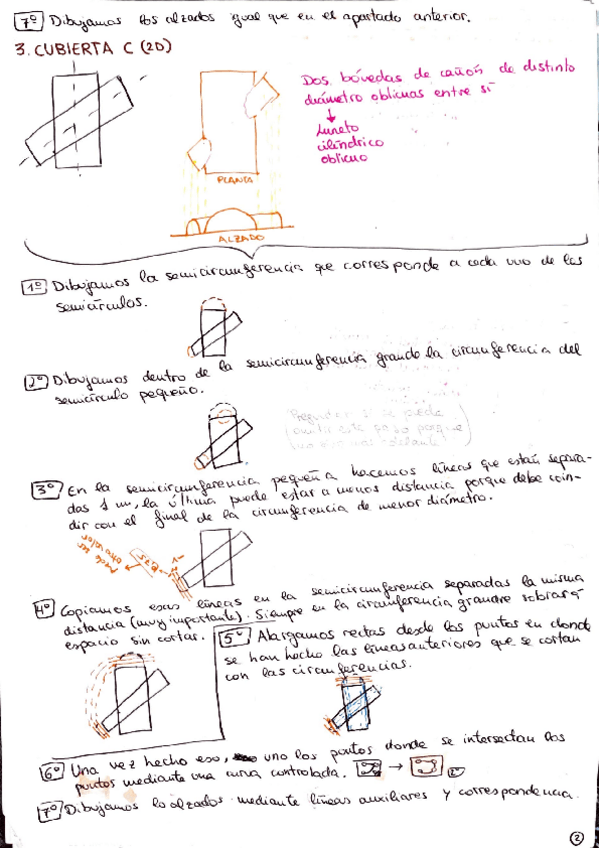 7º Dibujamos los alzados igual que en el apartado anterior.
3. CUBIERTA C (2D)
Dos bóvedas de cañón de distinto
diámetro oblicuas entre sí
Luneto
cilíndrico
oblicuo
PLANTA
ALZADO
1º Dibujamos la semicircunferencia que corresponde a cada uno de los
semicírculos.
2º Dibujamos dentro de la semicircunferencia grande la circunferencia del
semicírculo pequeño.
Preguntar si se puede
omitir este paso porque
3º En la semicircunferencia pequeña hacemos líneas que están separa-
das 1 m, la última puede estar a menos distancia porque debe coin-
dir con el final de la circunferencia de menor diámetro.
Puede ser
otro valor
0.75
1
4º Copiamos esas líneas en la semicircunferencia separadas la misma
distancia (muy importante). Siempre en la circunferencia grande sobrará
espacio sin cortar.
5º Alargamos rectas desde los puntos en donde
se han hecho las líneas anteriores que se cortan
con las circunferencias.
6º Una vez hecho eso, uno los puntos donde se intersectan los
puntos mediante una curva controlada.
7º Dibujamos lo alzados mediante líneas auxiliares y correspondencia.
2